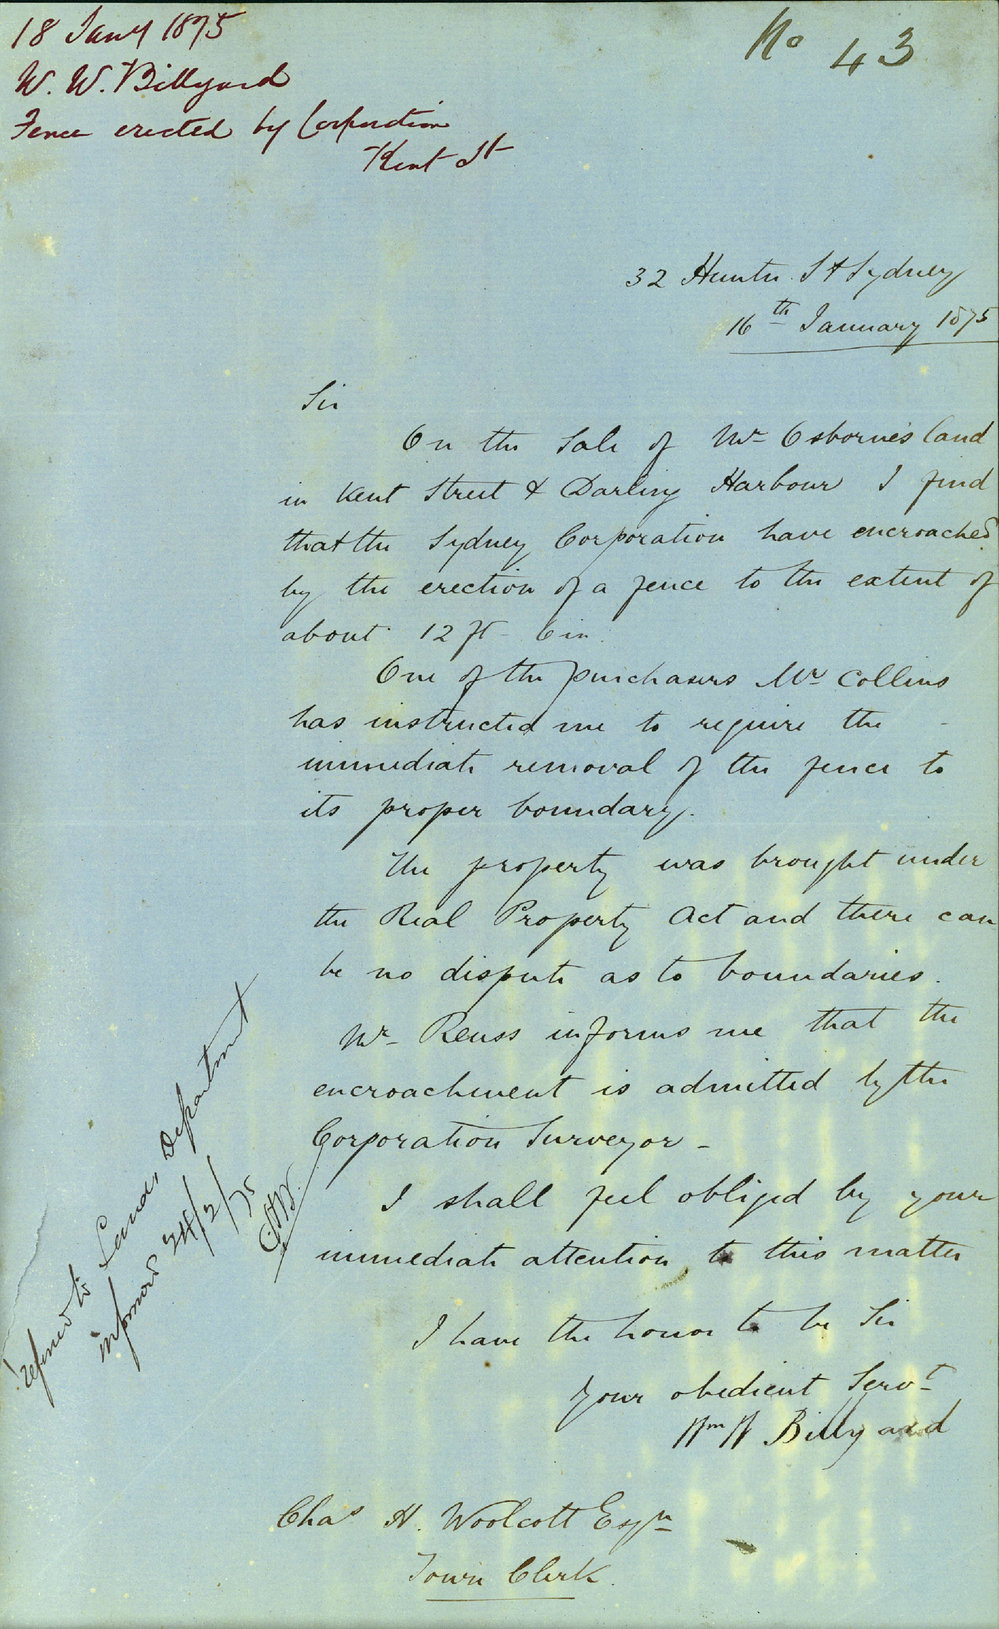 18 Jany 1875
W. W. Billyard
Fence erected by Corporation
Kent St
No 43
32 Hunter St Sydney
16th January 1875
Sir
On the Sale of Mr Osborne's land
in Kent Street & Darling Harbour I find
that the Sydney Corporation have encroached
by the erection of a fence to the extent of
about 12 ft - 6 in.
One of the purchasers Mr Collins
has instructed me to require the -
immediate removal of the fence to
its proper boundary.
The property was brought under
the Real Property Act and there can
be no dispute as to boundaries.
Mr Reuss informs me that the
encroachment is admitted by the
Corporation Surveyor -
I shall feel obliged by your
immediate attention to this matter
I have the honor to be Sir
Your obedient Servt
Wm W Billyard
Chas H. Woolcott Esqre
Town Clerk.
referred to Lands Department
informed 24/2/75
CHW.